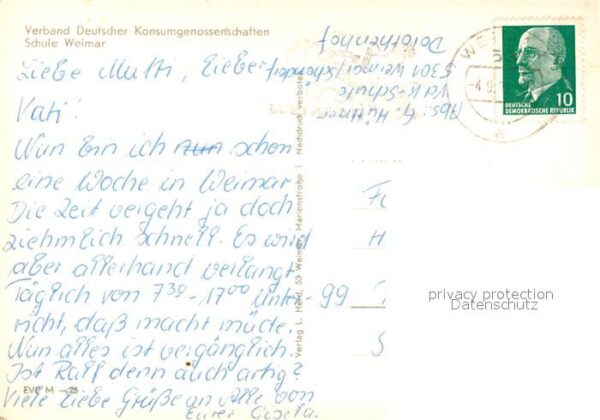 Verband Deutscher Konsumgenossenschaften
Schule Weimar
Liebe Mutti, Lieber
Vati!
Nun bin ich nun schon
eine Woche in Weimar
Die Zeit vergeht ja doch
ziehmlich schnell. Es wird
aber allerhand verlangt
Täglich von 7³⁰ - 17⁰⁰ Unter-
richt, daß macht müde.
Nun alles ist vergänglich.
Ist Ralf denn auch artig?
Viele liebe Grüße an Alle von
Eurer Gisela.
EVP M -,25
Abs: G. Hüttner
VdK-Schule
5301 Weimar/Schöndorf
Dorothenhof
Verlag L. Held, 53 Weimar, Marienstraße 1 Nachdruck verboten
99
DEUTSCHE
DEMOKRATISCHE REPUBLIK
10
privacy protection
Datenschutz